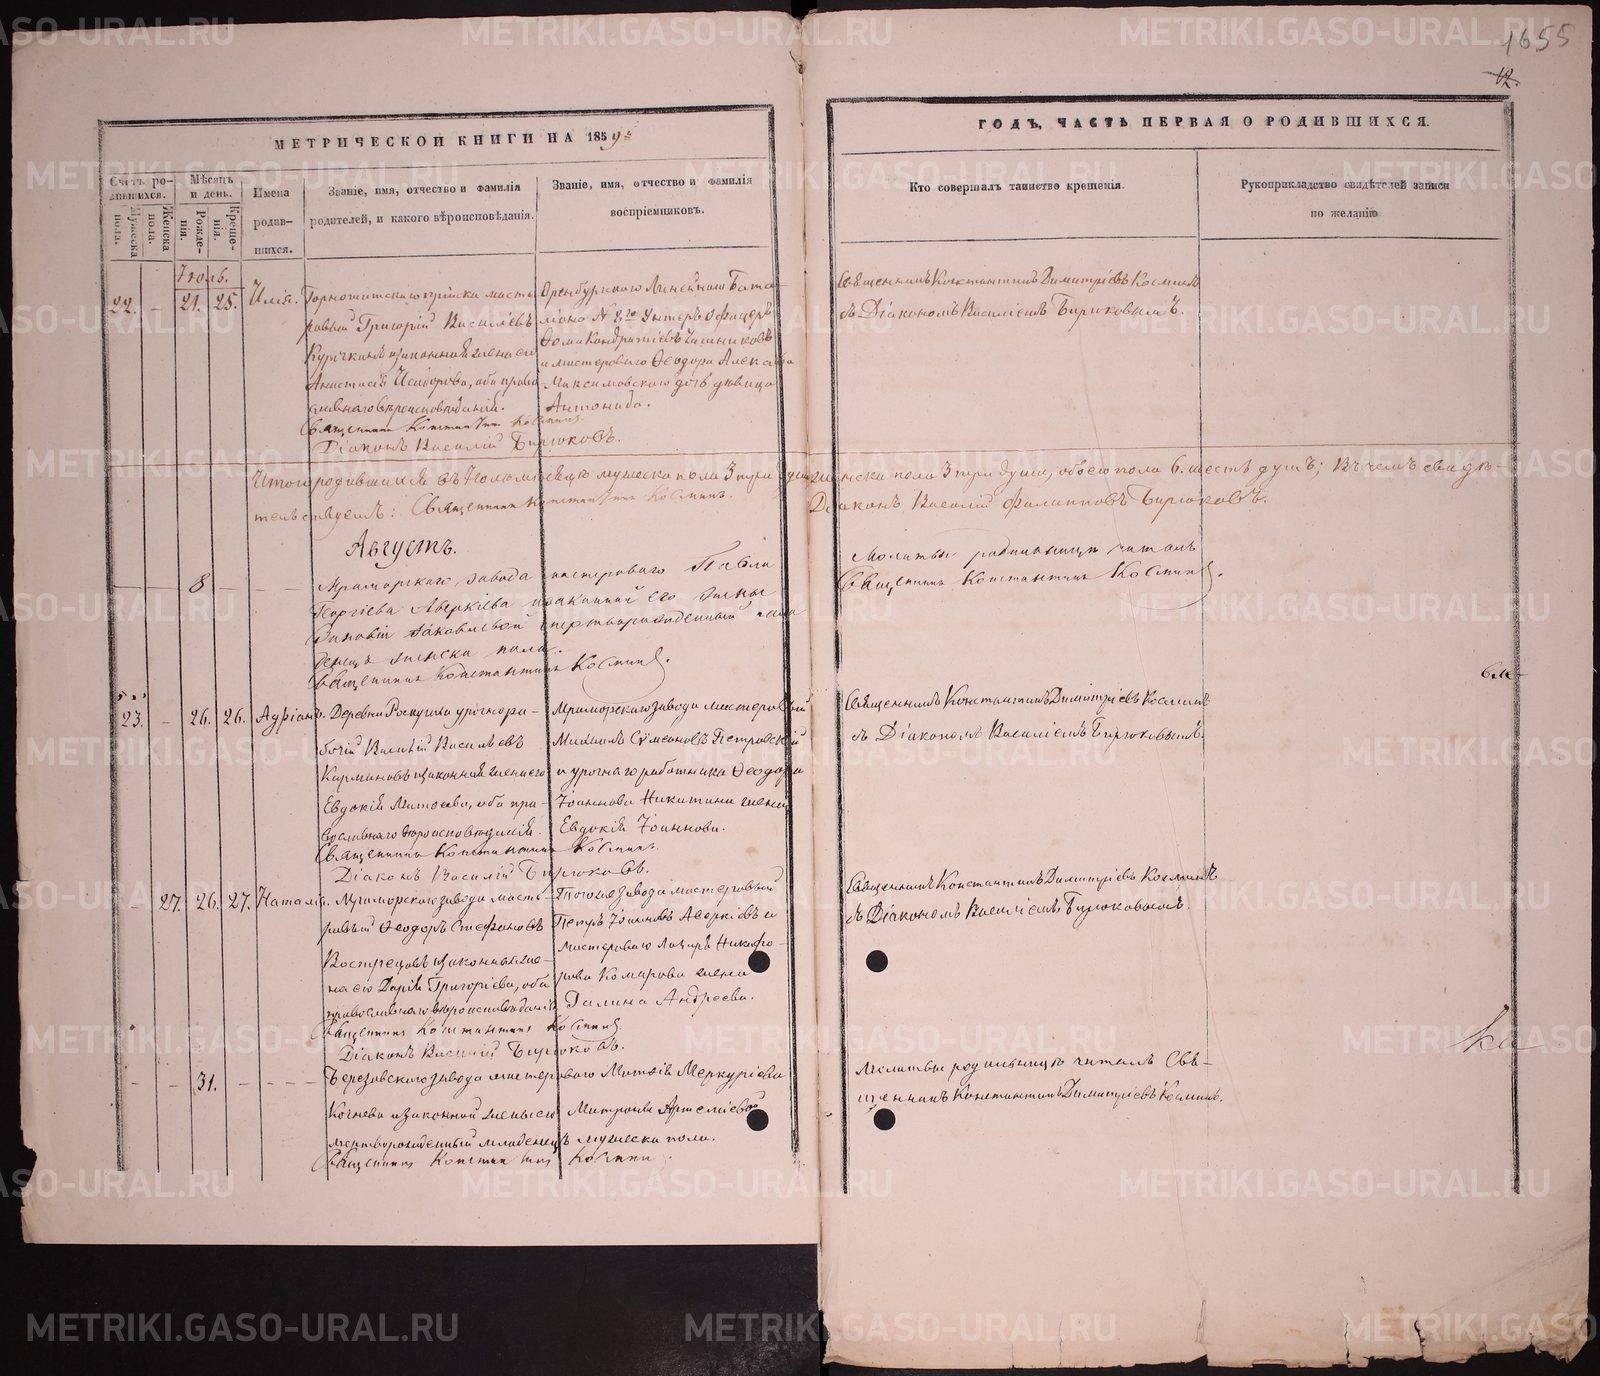 1655
12.
МЕТРИЧЕСКОЙ КНИГИ НА 1859й
ГОДЪ, ЧАСТЬ ПЕРВАЯ О РОДИВШИХСЯ.
Счетъ родившихся.
Мужеска пола.
Женска пола.
Мѣсяцъ и день.
Рожденія.
Крещенія.
Имена родившихся.
Званіе, имя, отчество и фамилія
родителей, и какого вѣроисповѣданія.
Званіе, имя, отчество и фамилія
воспріемниковъ.
Кто совершалъ таинство крещенія.
Рукоприкладство свидѣтелей записи
по желанію
Іюль.
22. - 21. 25. Илія.
Горнощитскаго мастеровый
Григорій Васильевъ
и законная жена его
Анастасія Исидорова, оба православнаго вѣроисповѣданія.
Священникъ Константинъ Косминъ
Діаконъ Василій Бирюковъ.
Оренбургскаго Линейнаго Баталіона
Унтеръ Офицеръ
Ѳома Кондратіевъ
и мастероваго Ѳеодора
Максимовскаго дочь дѣвица
Антонида.
Священникъ Константинъ Димитріевъ Косминъ
съ Діакономъ Василіемъ Бирюковымъ.
Итого родившихся въ Іюлѣ мѣсяцѣ мужеска пола 3 три души женска пола 3 три души, обоего пола 6. шесть душъ; Въ чемъ свидѣтельствуемъ:
Священникъ Константинъ Косминъ.
Діаконъ Василій Филипповъ Бирюковъ.
Августъ.
8
Мраморскаго завода мастероваго Павла
Георгіева Аверкіева и законной его жены
Зиновіи Іаковлевой мертворожденный младенецъ
женска пола.
Священникъ Константинъ Косминъ.
Молитвы родильницѣ читалъ
Священникъ Константинъ Косминъ.
23. - 26. 26. Адріанъ.
Деревни урочнорабочій
Василій Васильевъ
Кармановъ и законная жена его
Евдокія оба православнаго вѣроисповѣданія.
Священникъ Константинъ Косминъ.
Діаконъ Василій Бирюковъ.
Мраморскаго завода мастеровый
Михаилъ Сѵмеоновъ Петровскій
и урочнаго работника Ѳеодора
Іоаннова Никитина жена
Евдокія Іоаннова.
Священникъ Константинъ Димитріевъ Косминъ
съ Діакономъ Василіемъ Бирюковымъ.
- 27. 26. 27. Наталія.
Мраморскаго завода мастеровый
Ѳеодоръ Стефановъ
Вострецовъ и законная жена
его Дарія Григоріева, оба
православнаго вѣроисповѣданія.
Священникъ Константинъ Косминъ.
Діаконъ Василій Бирюковъ.
Тогоже завода мастеровый
Петръ Іоанновъ Аверкіевъ и
мастероваго Лазаря Никифорова
Комарова жена
Галина Андреева.
Священникъ Константинъ Димитріевъ Косминъ
съ Діакономъ Василіемъ Бирюковымъ.
- - 31. - - - -
Березовскаго завода мастероваго Матвія Меркуріева
Кочнева и законной жены его Матроны Артеміевой
мертворожденный младенецъ мужеска пола.
Священникъ Константинъ Косминъ.
Молитвы родильницѣ читалъ Священникъ
Константинъ Димитріевъ Косминъ.
METRIKI.GASO-URAL.RU